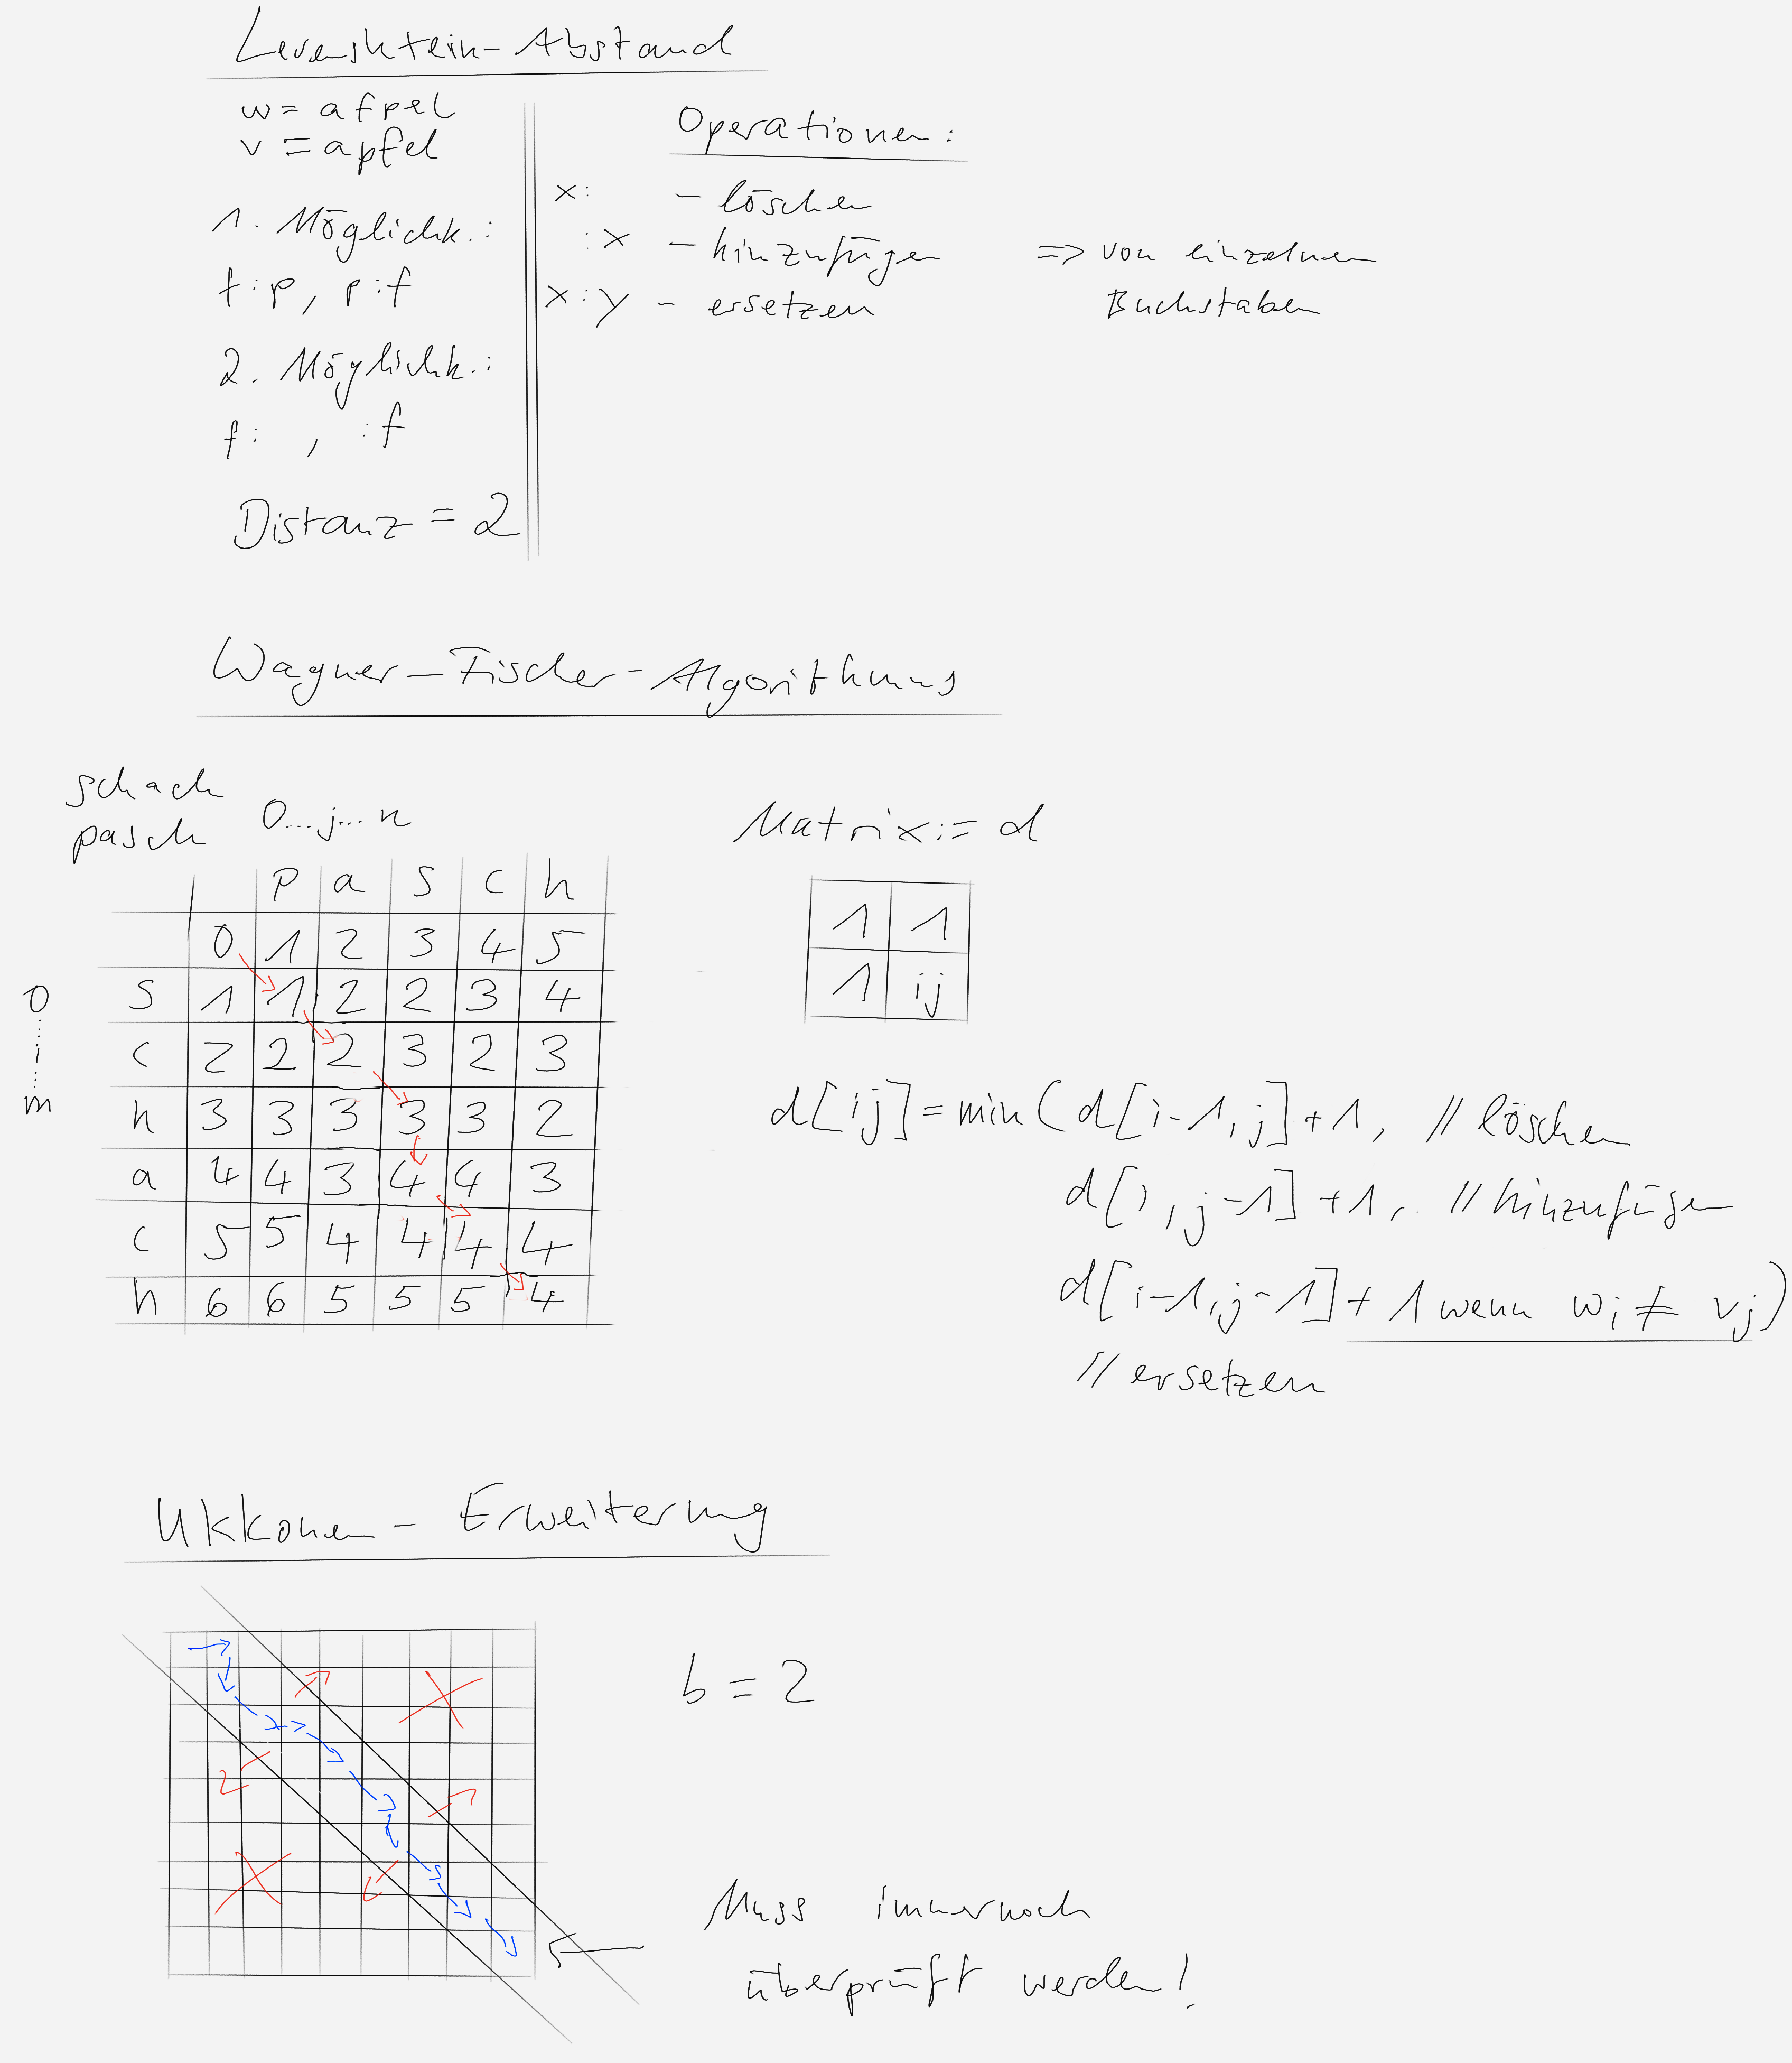 Levenshtein-Abstand
w = afpel
v = apfel
1. Möglichk.:
f:p, p:f
2. Möglichk.:
f: , :f
Distanz = 2
Operationen:
x: - löschen
:x - hinzufügen
x:y - ersetzen
=> von einzelnen
Buchstaben
Wagner-Fischer-Algorithmus
schach
pasch
0...j...n
0
i
m
p a s c h
0 1 2 3 4 5
s 1 1 2 2 3 4
c 2 2 2 3 2 3
h 3 3 3 3 3 2
a 4 4 3 4 4 3
c 5 5 4 4 4 4
h 6 6 5 5 5 4
Matrix := d
1 1
1 ij
d[ij] = min(d[i-1,j]+1, // löschen
d[i,j-1]+1, // hinzufügen
d[i-1,j-1]+1 wenn wi ≠ vj)
// ersetzen
Ukkonen-Erweiterung
b = 2
Muss immernoch
überprüft werden!